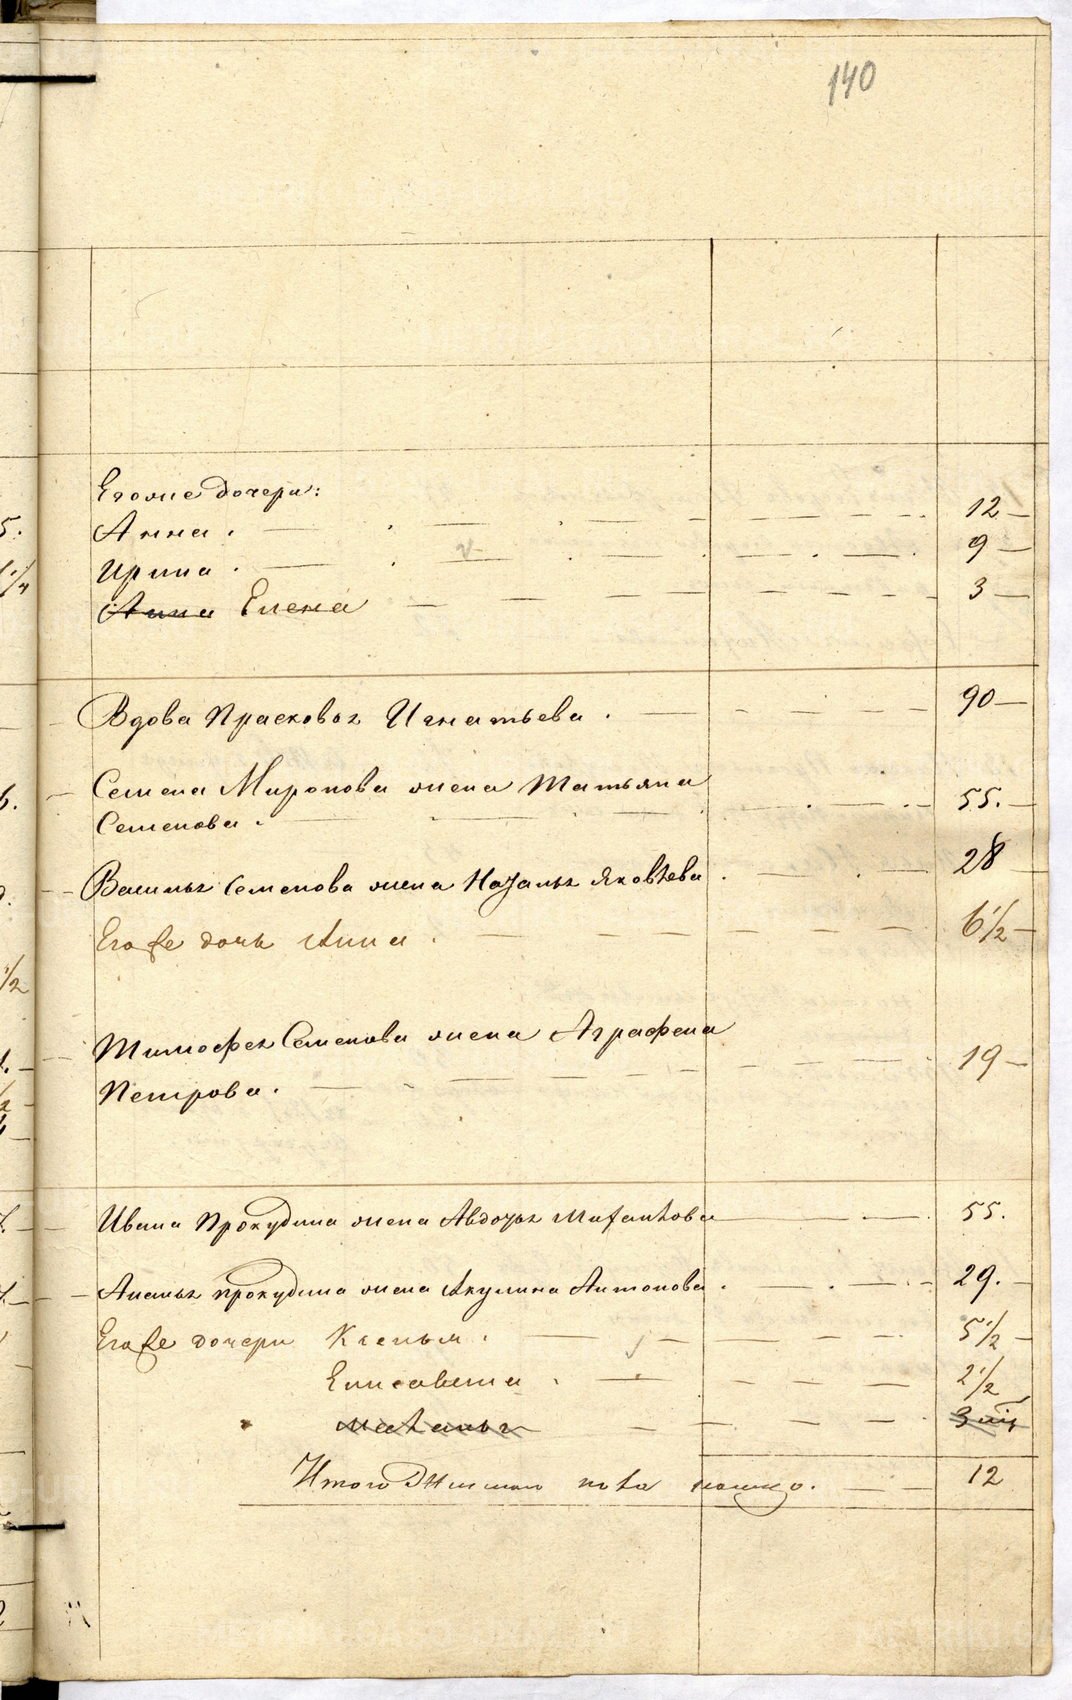 140
Егоже дочери:
Анна . 12
Ирина . 9
Анна Елена 3
Вдова Прасковья Игнатьева . 90
Семена Миронова жена Татьяна
Семенова . 55.
Василья Семенова жена Наталья Яковлева . 28
Егоже дочь Анна . 6 1/2
Тимофея Семенова жена Аграфена 19
Петрова .
Ивана Прокудина жена Авдотья 55.
Прокудина жена Акулина Антонова . 29.
Егоже дочери Ксенья . 5 1/2
Елисавета . 2 1/2
Наталья 3
Итого пола . 12